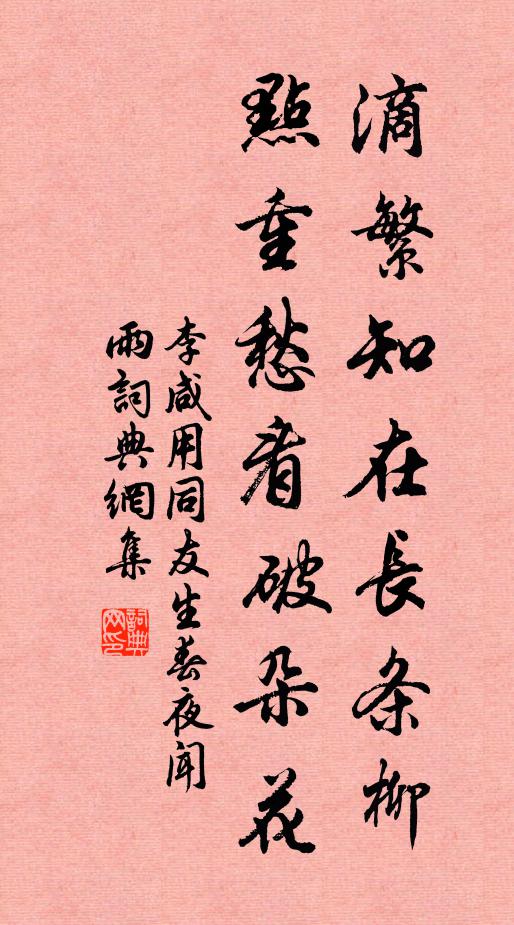 滴繁知在長条柳
點重愁看破朵花
李咸用同友生春夜聞
雨詞典網集
詞典網印